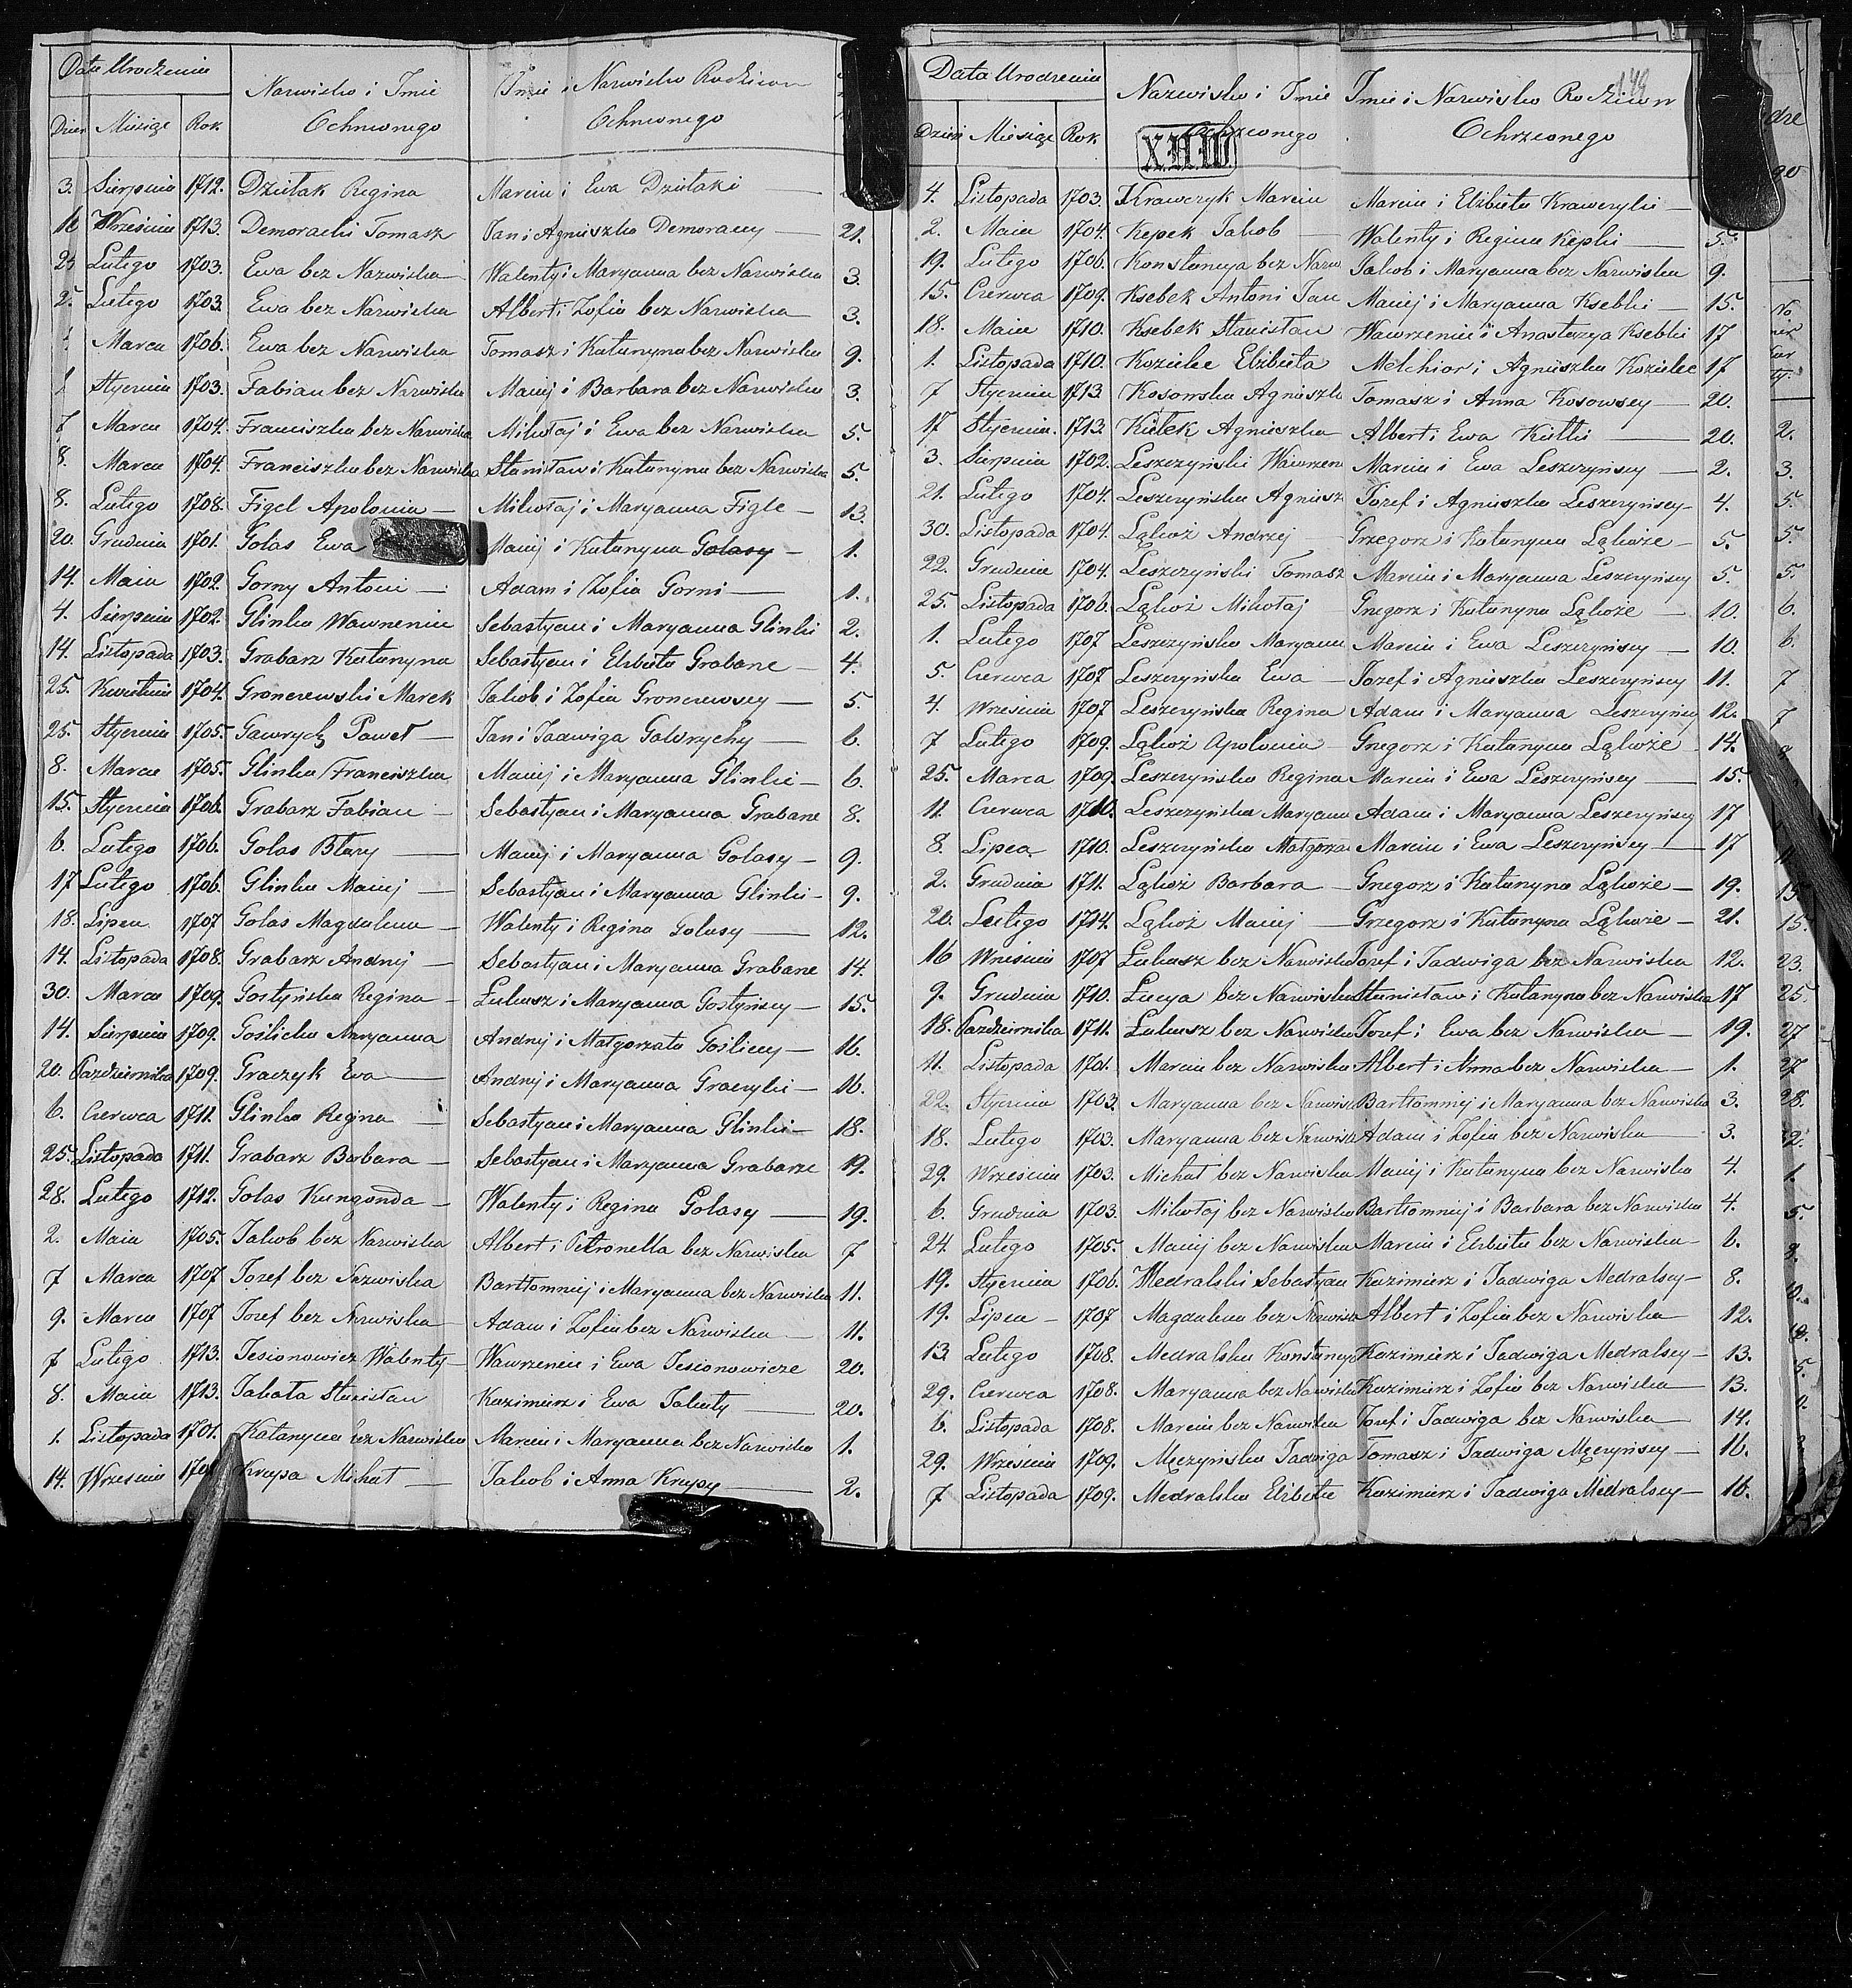 Data Urodzenia
Nazwisko i Imie
Imie i Nazwisko Rodziców
Dzień Miesiąc Rok
Ochrzconego
Ochrzconego
3. Sierpnia 1712. Dziełak Regina Marcin i Ewa Dziełaki
Września 1713. Demoracki Tomasz Jan i Agnieszka Demoraccy 21.
Lutego 1703. Ewa bez Nazwiska Walenty i Maryanna bez Nazwiska 3.
2. Lutego 1703. Ewa bez Nazwiska Albert i Zofia bez Nazwiska 3.
Marca 1706. Ewa bez Nazwiska Tomasz i Katarzyna bez Nazwiska 9.
Stycznia 1703. Fabian bez Nazwiska Maciej i Barbara bez Nazwiska 3.
7 Marca 1704. Franciszka bez Nazwiska Mikołaj i Ewa bez Nazwiska 5.
8. Marca 1704. Franciszka bez Nazwiska Stanisław i Katarzyna bez Nazwiska 5.
8. Lutego 1708. Figel Apolonia Mikołaj i Maryanna Figle 13.
20. Grudnia 1701. Golas Ewa Maciej i Katarzyna Golasy 1.
14. Maia 1702. Gorny Antoni Adam i Zofia Gorni 1.
4. Sierpnia 1702. Glinka Wawrzeniec Sebastyan i Maryanna Glinki 2.
14. Listopada 1703. Grabarz Katarzyna Sebastyan i Elzbieta Grabarze 4.
25. Kwietnia 1704. Gronczewski Marek Jakob i Zofia Gronczewscy 5.
25. Stycznia 1705. Gawrych Paweł Jan i Jadwiga Gawrychy 6.
8. Marca 1705. Glinka Franciszka Maciej i Maryanna Glinki 6.
15. Stycznia 1706. Grabarz Fabian Sebastyan i Maryanna Grabarze 8.
6. Lutego 1706. Golas Błazy Maciej i Maryanna Golasy 9.
17 Lutego 1706. Glinka Maciej Sebastyan i Maryanna Glinki 9.
18. Lipca 1707 Golas Magdalena Walenty i Regina Golasy 12.
14. Listopada 1708. Grabarz Andrzej Sebastyan i Maryanna Grabarze 14.
30. Marca 1709. Gostyńska Regina Łukasz i Maryanna Gostyńscy 15.
14. Sierpnia 1709. Goślicka Maryanna Andrzej i Małgorzata Gośliccy 16.
20. Października 1709. Graczyk Ewa Andrzej i Maryanna Graczyki 16.
6. Czerwca 1711. Glinka Regina Sebastyan i Maryanna Glinki 18.
25. Listopada 1711. Grabarz Barbara Sebastyan i Maryanna Grabarze 19.
28. Lutego 1712. Golas Kungonda Walenty i Regina Golasy 19.
2. Maia 1705. Jakob bez Nazwiska Albert i Petronella bez Nazwiska 7
7 Marca 1707 Jozef bez Nazwiska Bartłomniej i Maryanna bez Nazwiska 11.
9. Marca 1707 Jozef bez Nazwiska Adam i Zofia bez Nazwiska 11.
7 Lutego 1713. Jesionowicz Walenty Wawrzeniec i Ewa Jesionowicze 20.
8. Maia 1713. Jakata Stanisław Kazimierz i Ewa Jakaty 20.
1. Listopada 1701. Katarzyna bez Nazwiska Marcin i Maryanna bez Nazwiska 1.
14. Września Krupa Michał Jakob i Anna Krupy 2.
149
Data Urodzenia
Nazwisko i Imie
Imie i Nazwisko Rodziców
Dzień Miesiąc Rok
Ochrzconego
Ochrzconego
X.II.III
4. Listopada 1703. Krawczyk Marcin Marcin i Elzbieta Krawczyki
2. Maia 1704. Kepek Jakob Walenty i Regina Kepki 5.
19. Lutego 1706. Konstancya bez Nazw Jakob i Maryanna bez Nazwiska 9.
15. Czerwca 1709. Ksebek Antoni Jan Maciej i Maryanna Ksebki 15.
18. Maia 1710. Ksebek Stanisław Wawrzeniec i Anastazya Ksebki 17
1. Listopada 1710. Kozielec Elzbieta Melchior i Agnieszka Kozielec 17
7 Stycznia 1713. Kosowska Agnieszka Tomasz i Anna Kosowscy 20.
17 Stycznia. 1713. Kułek Agnieszka Albert i Ewa Kułki 20.
3. Sierpnia 1702. Leszczyński Wawrzen Marcin i Ewa Leszczyńscy 2.
21. Lutego 1704. Leszczyńska Agniesz Jozef i Agnieszka Leszczyńscy 4.
30. Listopada 1704. Łąkoż Andrzej Grzegorz i Katarzyna Łąkoże 5.
22. Grudnia 1704. Leszczyński Tomasz Marcin i Maryanna Leszczyńscy 5.
25. Listopada 1706. Łąkoż Mikołaj Grzegorz i Katarzyna Łąkoże 10.
1. Lutego 1707 Leszczyńska Maryanna Marcin i Ewa Leszczyńscy 10.
5. Czerwca 1707 Leszczyńska Ewa Jozef i Agnieszka Leszczyńscy 11.
4. Września 1707 Leszczyńska Regina Adam i Maryanna Leszczyńscy 12.
7 Lutego 1709. Łąkoż Apolonia Grzegorz i Katarzyna Łąkoże 14.
25. Marca 1709. Leszczyńska Regina Marcin i Ewa Leszczyńscy 15.
11. Czerwca 1710. Leszczyńska Maryanna Adam i Maryanna Leszczyńscy 17
8. Lipca 1710. Leszczyńska Małgorza Marcin i Ewa Leszczyńscy 17
2. Grudnia 1711. Łąkoż Barbara Grzegorz i Katarzyna Łąkoże 19.
20. Lutego 1714. Łąkoż Maciej Grzegorz i Katarzyna Łąkoże 21.
16 Września 1707 Łukasz bez Nazwiska Jozef i Jadwiga bez Nazwiska 12.
9. Grudnia 1710. Łucya bez Nazwiska Stanisław i Katarzyna bez Nazwiska 17
18. Października 1711. Łukasz bez Nazwiska Jozef i Ewa bez Nazwiska 19.
11. Listopada 1701. Marcin bez Nazwiska Albert i Anna bez Nazwiska 1.
22. Stycznia 1703. Maryanna bez Nazwiska Bartłomniej i Maryanna bez Nazwiska 3.
18. Lutego 1703. Maryanna bez Nazwiska Adam i Zofia bez Nazwiska 3.
29. Września 1703. Michał bez Nazwiska Maciej i Katarzyna bez Nazwiska 4.
6. Grudnia 1703. Mikołaj bez Nazwiska Bartłomniej i Barbara bez Nazwiska 4.
24. Lutego 1705. Maciej bez Nazwiska Marcin i Elzbieta bez Nazwiska 6.
19. Stycznia 1706. Medralski Sebastyan Kazimierz i Jadwiga Medralscy 8.
19. Lipca 1707 Magdalena bez Nazwiska Albert i Zofia bez Nazwiska 12.
13. Lutego 1708. Medralska Konstancya Kazimierz i Jadwiga Medralscy 13.
29. Czerwca 1708. Maryanna bez Nazwiska Kazimierz i Zofia bez Nazwiska 13.
6. Listopada 1708. Marcin bez Nazwiska Jozef i Jadwiga bez Nazwiska 14.
29. Września 1709. Męczyńska Jadwiga Tomasz i Jadwiga Męczyńscy 16.
7 Listopada 1709. Medralska Elzbieta Kazimierz i Jadwiga Medralscy 16.